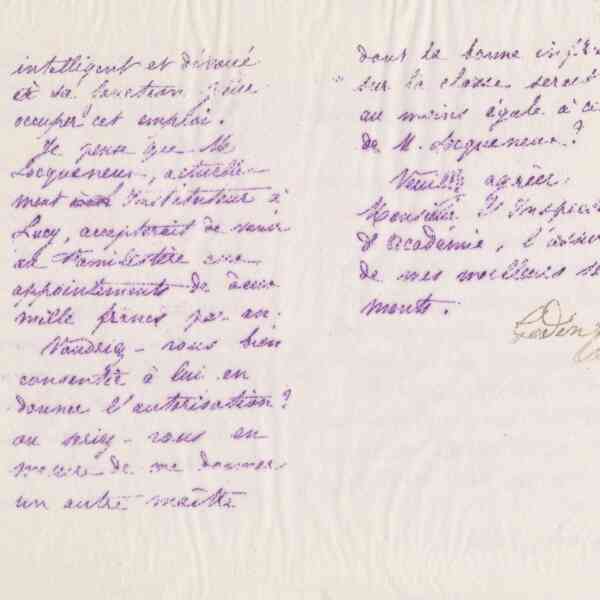 intelligent et dévoué
à sa fonction pour
occuper cet emploi.
Je pense que M
Locqueneux, actuelle-
ment Instituteur à
Lucy, accepterait de venir
au Familistère aux
appointements de deux
mille francs par an.
Voudriez-vous bien
consentir à lui en
donner l'autorisation?
ou seriez-vous en
mesure de me donner
un autre maître
dont la bonne
sur la classe serait
au moins égale à
de M. Locqueneux?
Veuillez agréer,
Monsieur l'
d'académie, l'
de mes meilleurs
ments.